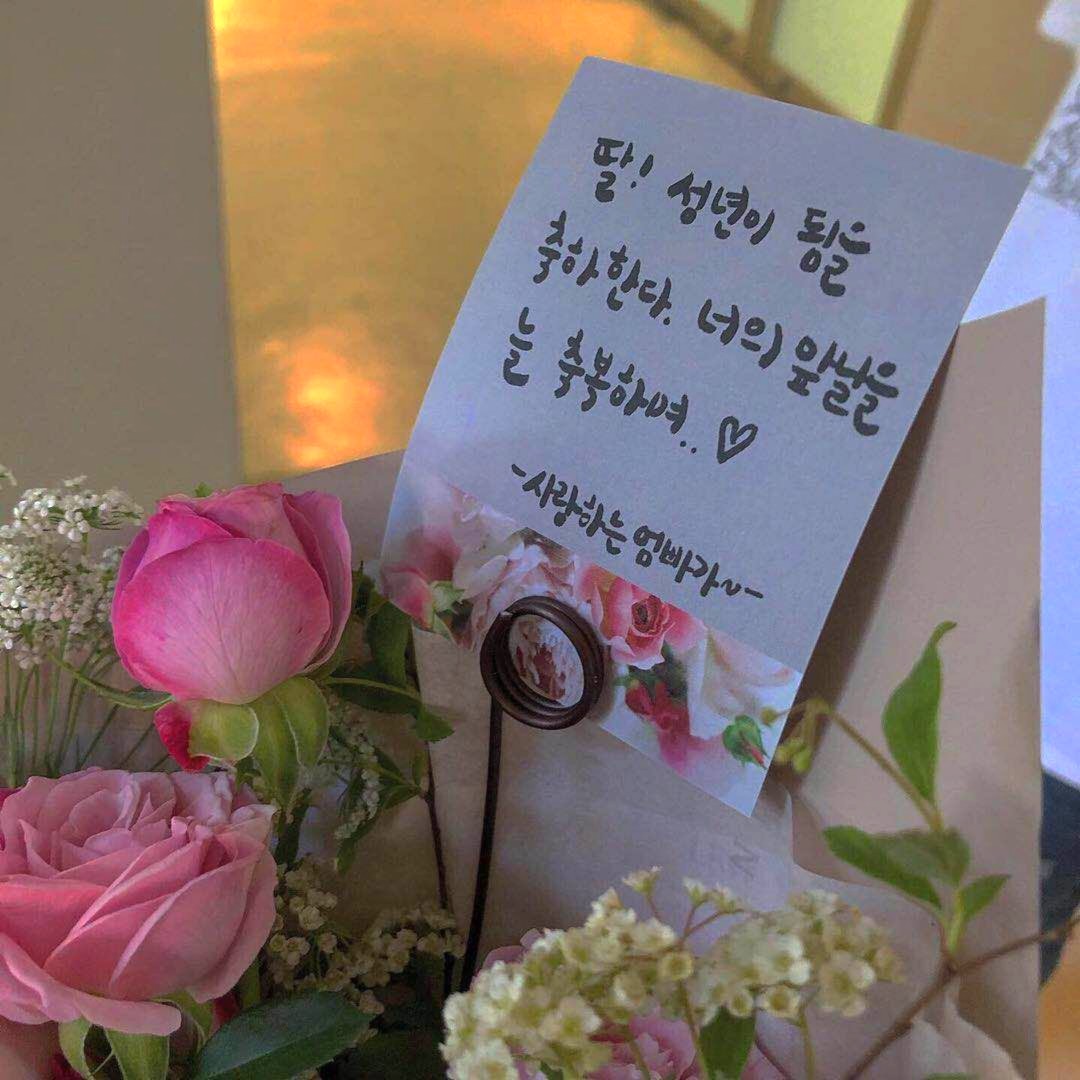 딸! 성년이 됨을
축하한다. 너의 앞날을
늘 축복하며.. ♡
-사랑하는 엄빠가~-